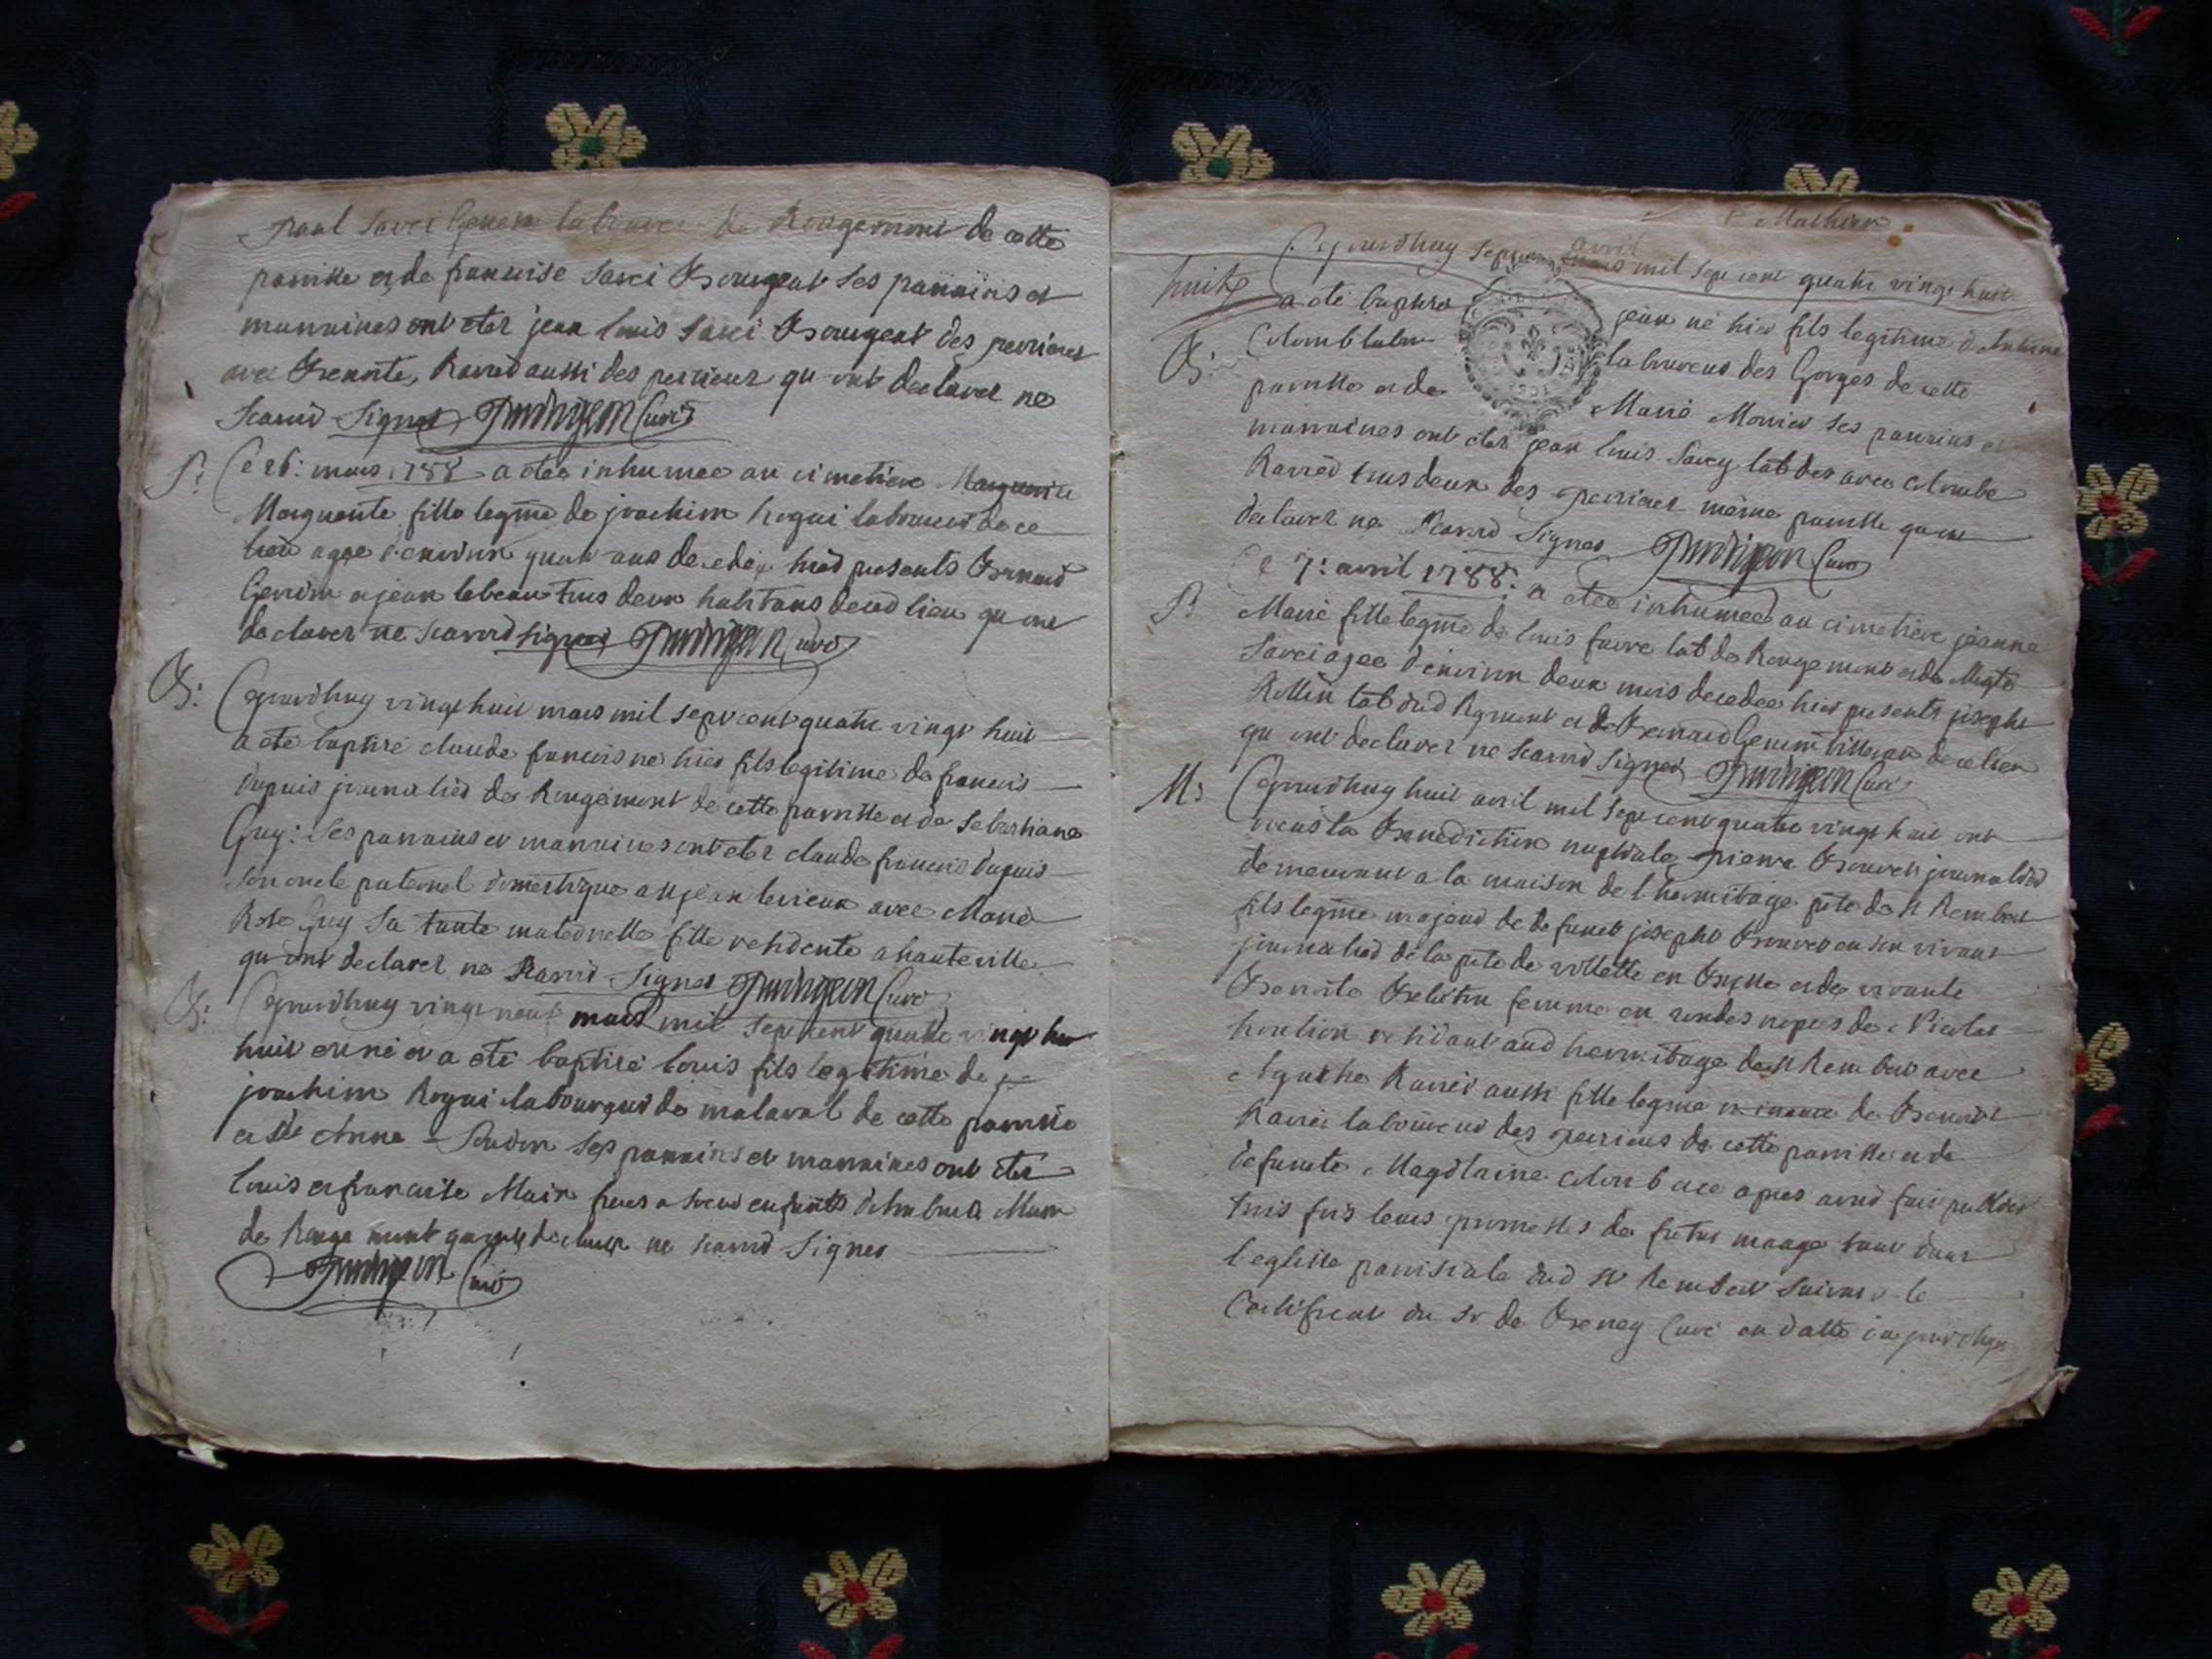 paul savei laboureur de Rougemont de cette
paroisse et de francoise savei Bourgeat ses parrains et
marraines ont eter jean louis savei Bourgeat des perrieres
avec Benoite Ravied aussi des perrieres qu ont declarer ne
scavoir signer curé
S: Ce 26: mars 1788 a etee inhumee au cimetiere
Marguerite fille legme de joachim hogui laboureur de ce
lieu agee d'environ quatre ans decedée hier presents Bernard
et jean lebeau tous deux habitans decedlieu qu ont
declarer ne scavoir signer curé
B: Cejourdhuy vingt huit mars mil sept cent quatre vingt huit
a eté baptisé claude francois né hier fils legitime de francois
dupuis journalier de Rougemont de cette paroisse et de sebastiane
Guy: ses parrains et marraines ont eter claude francois dupuis
son oncle paternel domestique a jean levieux avec Marie
Rose Guy sa tante maternelle fille residente a hauteville
qu ont declarer ne scavoir signer curé
B: Cejourdhuy vingt neuf mars mil sept cent quatre vingt
huit est né et a eté baptisé louis fils legitime de
joachim hogui laboureur de malaval de cette paroisse
et de Anne ses parrains et marraines ont eter
louis et francoise Main freres et soeur enfants
de Rougemont qu ont declarer ne scavoir signer
curé
Mathieu
Cejourdhuy sept avril mil sept cent quatre vingt huit
huit a eté baptisé jean né hier fils legitime d'Antoine
B: laboureur des Gorges de cette
paroisse et de Marie Monier ses parrains et
marraines ont eter jean louis savey lab des avec colombe
Ravied tous deux des perrieres même paroisse qu ont
declarer ne scavoir signer curé
S: Ce 7: avril 1788: a etee inhumee au cimetiere jeanne
Marie fille legme de louis favre lab de Rougemont et de
savei agee d'environ deux mois decedee hier presents joseph
lab dud et de Bernard de ce lieu
qu ont declarer ne scavoir signer curé
M: Cejourdhuy huit avril mil sept cent quatre vingt huit ont
recus la Benediction nuptiale pierre Bouvet journalier
demeurant a la maison de l hermitage psse de st Rembert
fils legme majeur de defunct joseph Bouvet en son vivant
journalier de la psse de villette en Bresse et de vivante
Benoite femme en secondes noces de Nicolas
residant aud hermitage de st Rembert avec
Agathe Ravier aussi fille legme de Benoit
Ravier laboureur des perrieres de cette paroisse et de
defuncte Magdlaine colomb ace apres avoir fait publier
trois fois leurs promesses de futur mariage tant dans
l eglise paroissiale dud st Rembert suivant le
Certificat du sr de curé en datte cejourdhuy